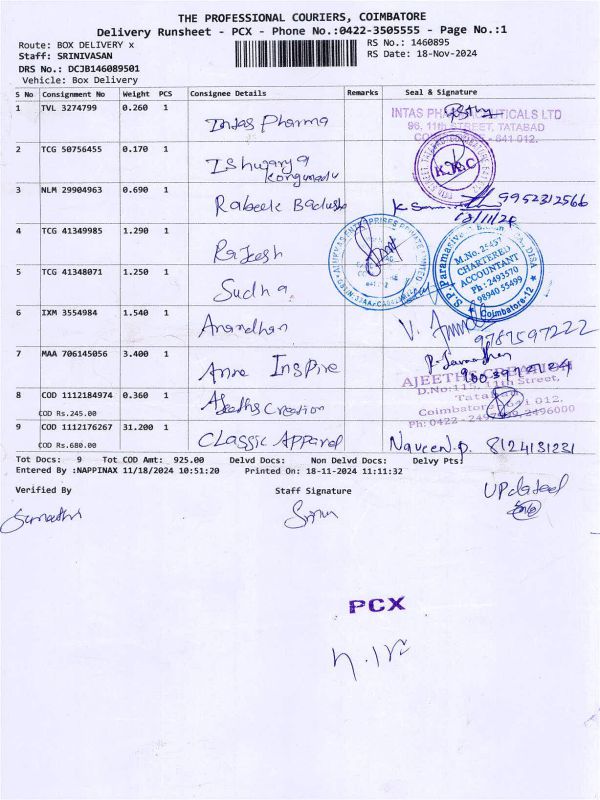 THE PROFESSIONAL COURIERS, COIMBATORE
Delivery Runsheet - PCX - Phone No.:0422-3505555 - Page No.:1
Route: BOX DELIVERY x
RS No.: 1460895
Staff: SRINIVASAN
RS Date: 18-Nov-2024
DRS No.: DCJB146089501
Vehicle: Box Delivery
S No Consignment No Weight PCS Consignee Details Remarks Seal & Signature
1 TVL 3274799 0.260 1 Intas Pharma
INTAS PHARMACEUTICALS LTD
96, 11th STREET, TATABAD
COIMBATORE - 641 012.
2 TCG 50756455 0.170 1 Ishwarya
K.K.C
3 NLM 29904963 0.690 1 Rabeek Badusha
9952312566
18/11/24
4 TCG 41349985 1.290 1 Rajesh
ENTERPRISES PRIVATE LIMITED
M.No. 25457
CHARTERED
ACCOUNTANT
Ph: 2493570
98940 55499
Coimbatore-12
5 TCG 41348071 1.250 1 Sudha
6 IXM 3554984 1.540 1 Anandhan
9787597222
7 MAA 706145056 3.400 1 Anne Inspire
8 COD 1112184974 0.360 1 Ajeeths Creation
COD Rs.245.00
D.No:115, 11th Street,
Tatabad
Coimbatore 641 012.
2496000
9 COD 1112176267 31.200 1 Classic Apparel Naveen.P. 8124131231
COD Rs.680.00
Tot Docs: 9 Tot COD Amt: 925.00 Delvd Docs: Non Delvd Docs: Delvy Pts:
Entered By :NAPPINAX 11/18/2024 10:51:20 Printed On: 18-11-2024 11:11:32
Verified By
Staff Signature
Updated
PCX